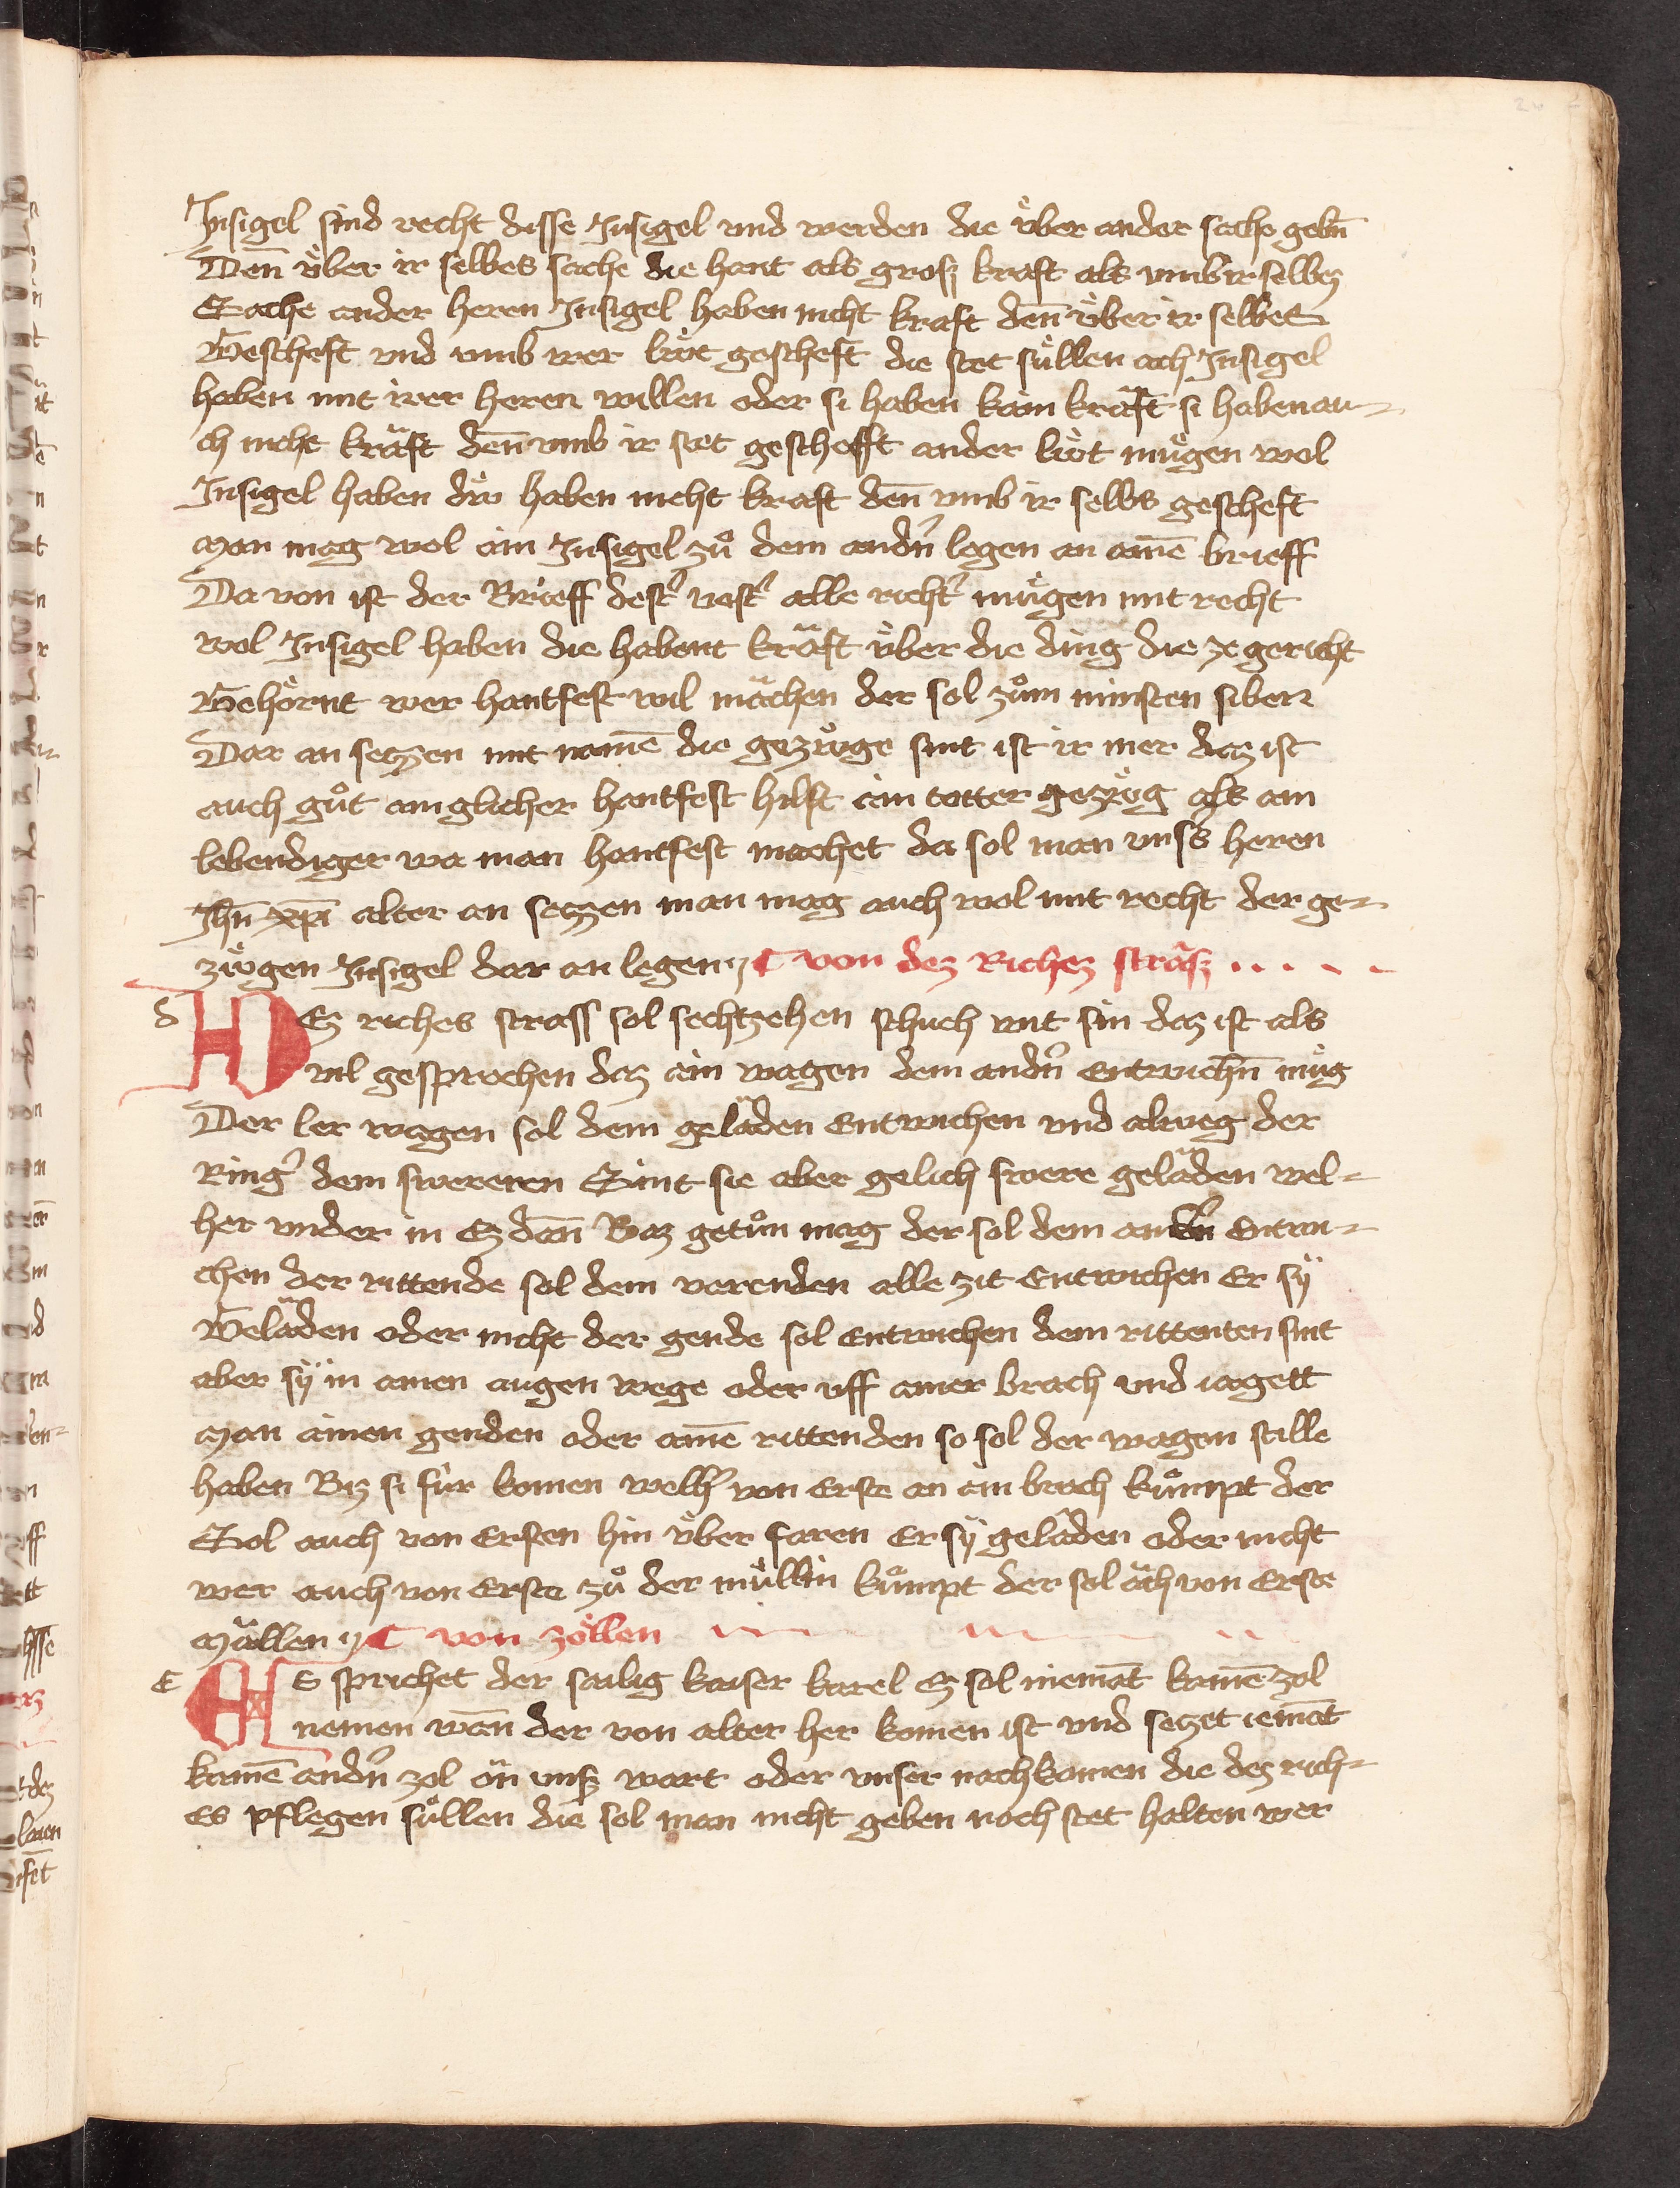 Jnsigel sind recht disse Jnsigel vnd werden die v̈ber ander sache gebn̄
Den̄ v̈ber ir selbes sache die hant als grosz kraft als vmb ir selbez
Sache ander heren Jnsigel haben nicht kraft den̄ v̈ber ir selbes
Gescheft vnd vmb wer lv̈t gescheft die stet süllen ach Jnsigel
haben mit irer heren willen oder si haben kain kräft si haben au-
ch nicht kräft den̄ vmb ir stet geschefft ander lv̈t mügen wol
Jnsigel haben div̈ haben nicht kraft den̄ vmb ir selbs gescheft
Man mag wol ain Jnsigel zů dem andn̄ legen an aimē brieff
Da von ist der Brieff dest͛ vest͛ alle richt͛ mügen mit recht
wol Jnsigel haben die habent kräft v̈ber die ding die ze gericht
Gehörnt wer hantfest wil mächen der sol zům minsten siben
Dar an setzen mit namē die gezv̈ge sint ist ir mer daz ist
auch gůt ainglicher hantfest hilft ain totter gezv̈g als ain
lebendiger wa man hantfest machet da sol man vnss heren
Jhn̄ xp̄i alter an setzen man mag auch wol mit recht der ge-
zv̈gen Jnsigel dar an legen von dez Richez sträsz . . . . .
d DEz riches strass sol sechtzehen schuch wit sin daz ist als
vil gesprochen daz ain wagen dem andn̄ entwichn̄ müg
Der ler wagen sol dem geläden Entwichen vnd alweg der
Ring͛ dem swereren Sint sie aber gelich swere geläden wel-
her vnder in Ez dan̄ Baz getůn mag der sol dem andn̄ Entwi-
chen der rittende sol dem varenden alle zit Entwichen Er sÿ
Geläden oder nicht der gende sol Entwichen dem rittenten sint
aber sÿ in ainen augen wege oder vff ainer brach vnd iagett
Man ainen genden oder aimē rittenden so sol der wagen stille
haben Biz si für komen welh͛ von Erste an ain bruch kümpt der
Sol auch von Ersten hin v̈ber faren Er sÿ geläden oder nicht
wer auch von Erste zů der müllin kümpt der sol äch von Erste
Mällen von zöllen
E ES sprichet der sailig kaiser karel Ez sol niemāt kainē zol
nemen wan̄ der von alter her komen ist vnd setzet iemāt
kainē andn̄ zol än vnsz wort oder vnser nachkomen die dez rich-
Es pflegen süllen die sol man nicht geben noch stet halten wer